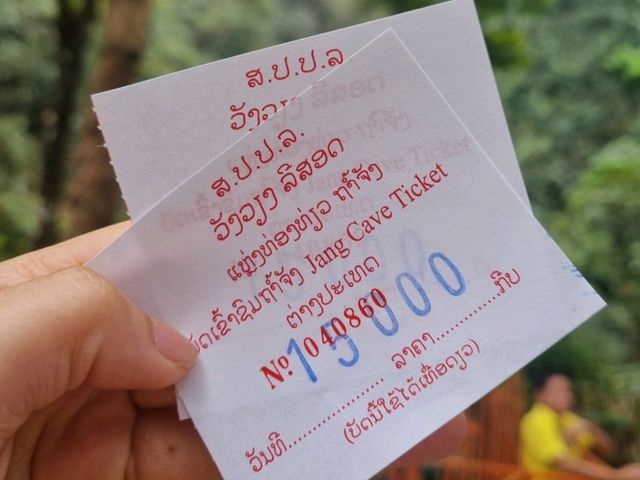 ສ.ປ.ປ.ລ
ວັງວຽງ ລີສອດ
ສ.ປ.ປ.ລ.
ວັງວຽງ ລີສອດ
ແຫຼ່ງທ່ອງທ່ຽວ ຖໍ້າຈັງ
ເຂົ້າຊົມຖໍ້າຈັງ Jang Cave Ticket
ຕ່າງປະເທດ
Nº. 040860
15000
ລາຄາ...............ກີບ
ວັນທີ........................
(ບັດນີ້ໃຊ້ໄດ້ເທື່ອດຽວ)